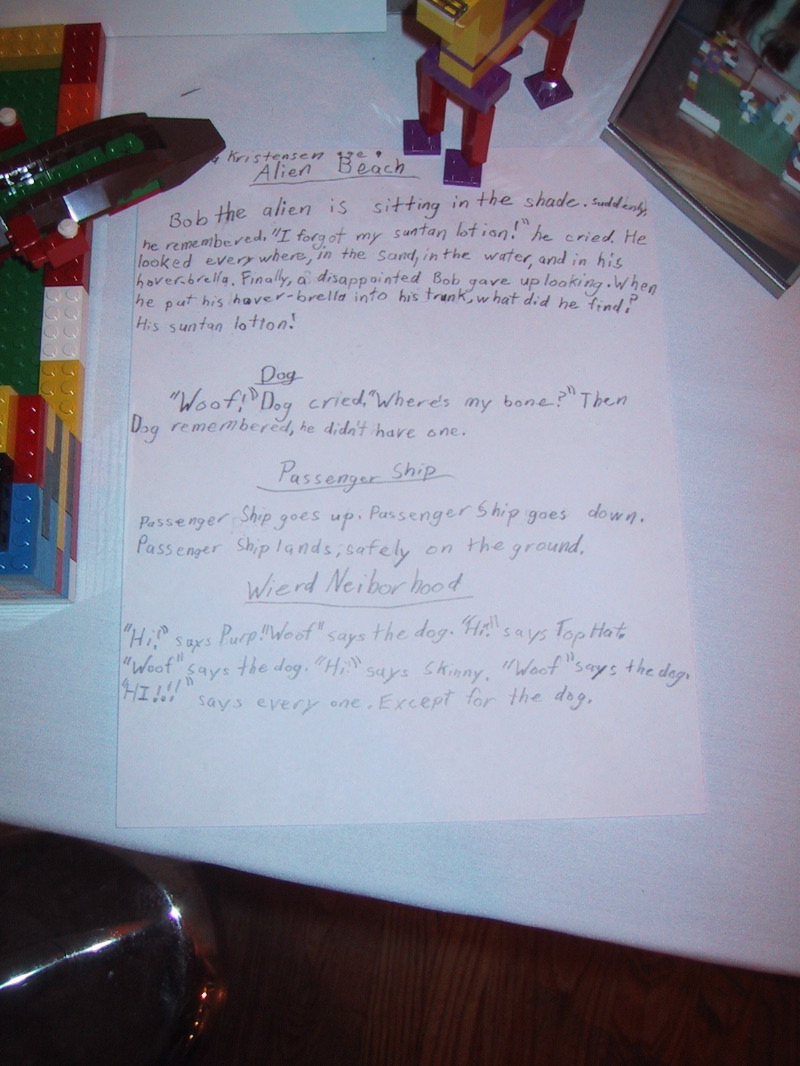 Kristensen
Alien Beach
Bob the alien is sitting in the shade. Suddenly,
he remembered. "I forgot my suntan lotion!" he cried. He
looked every where, in the sand, in the water, and in his
hover-brella. Finally, a disappointed Bob gave up looking. When
he put his hover-brella into his trunk, what did he find?
His suntan lotion!
Dog
"Woof!" Dog cried. "Where's my bone?" Then
Dog remembered, he didn't have one.
Passenger Ship
Passenger Ship goes up. Passenger Ship goes down.
Passenger Ship lands, safely on the ground.
Wierd Neiborhood
"Hi!" says Purp. "Woof" says the dog. "Hi!" says Top Hat.
"Woof" says the dog. "Hi!" says Skinny. "Woof" says the dog.
"HI!!!" says every one. Except for the dog.